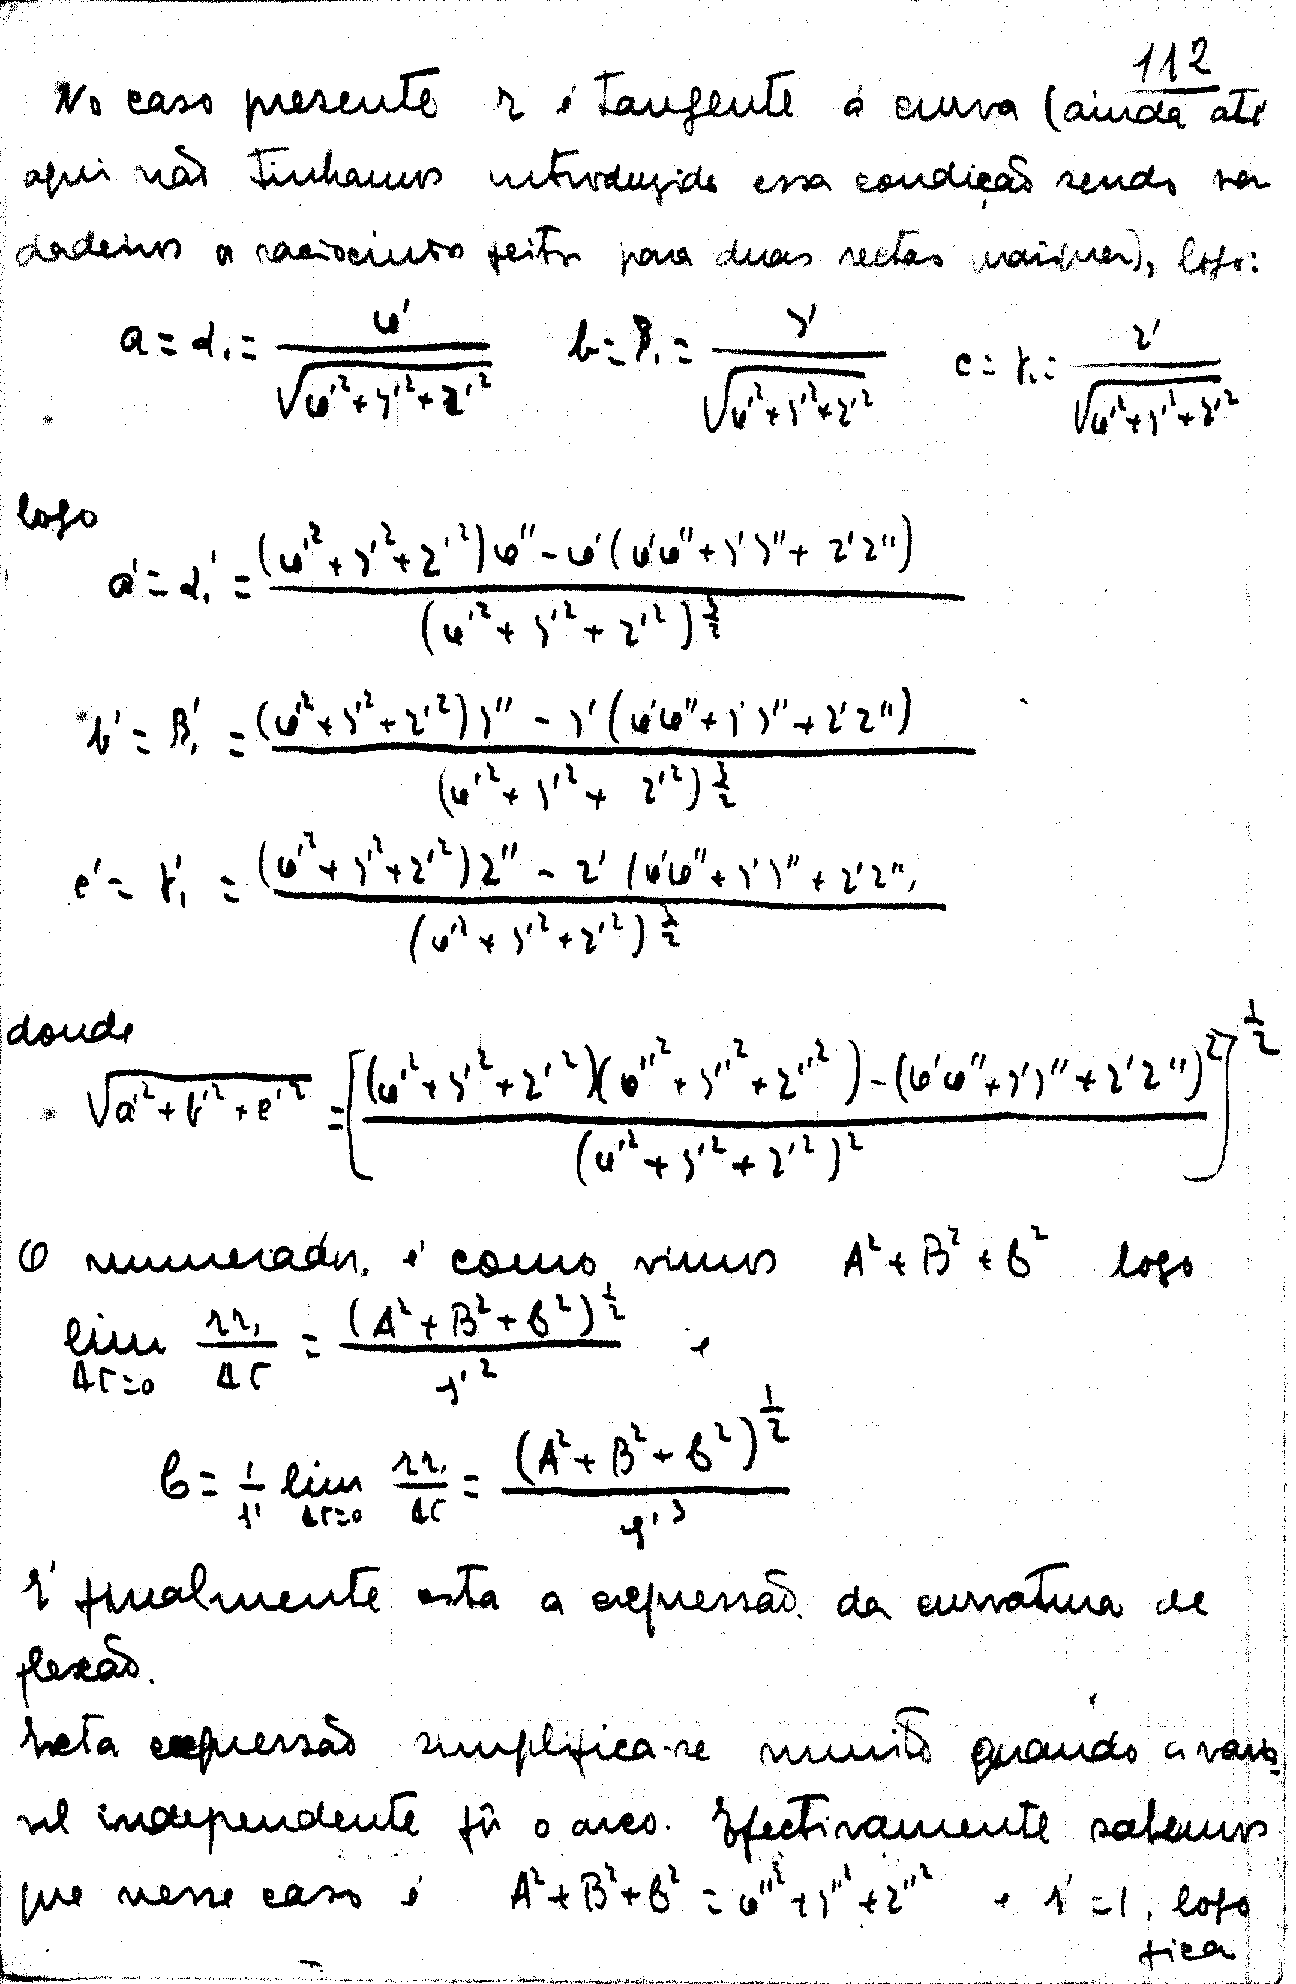 112
No caso presente r é tangente á curva (ainda até
aqui não tinhamos introduzido essa condição sendo ver
dadeiro o raciocinio feito para duas rectas quaisquer), logo:
a = α₁ = x'/√(x'²+y'²+z'²)   b = β₁ = y'/√(x'²+y'²+z'²)   c = γ₁ = z'/√(x'²+y'²+z'²)
logo
a' = α₁' = ((x'²+y'²+z'²)x'' - x'(x'x''+y'y''+z'z''))/(x'²+y'²+z'²)^(3/2)
b' = β₁' = ((x'²+y'²+z'²)y'' - y'(x'x''+y'y''+z'z''))/(x'²+y'²+z'²)^(3/2)
c' = γ₁' = ((x'²+y'²+z'²)z'' - z'(x'x''+y'y''+z'z''))/(x'²+y'²+z'²)^(3/2)
donde
√(a'²+b'²+c'²) = [((x'²+y'²+z'²)(x''²+y''²+z''²) - (x'x''+y'y''+z'z'')²)/(x'²+y'²+z'²)²]^(1/2)
O numerador é como vimos A²+B²+C² logo
lim Δt=0 rr₁/Δt = (A²+B²+C²)^(1/2)/s'² e
C = 1/s' lim Δt=0 rr₁/Δt = (A²+B²+C²)^(1/2)/s'³
E' finalmente esta a expressão da curvatura de
flexão.
Esta expressão simplifica-se muito quando a variá-
vel independente fôr o arco. Efectivamente sabemos
que nesse caso é A²+B²+C² = x''²+y''²+z''² e s' = 1, logo
fica